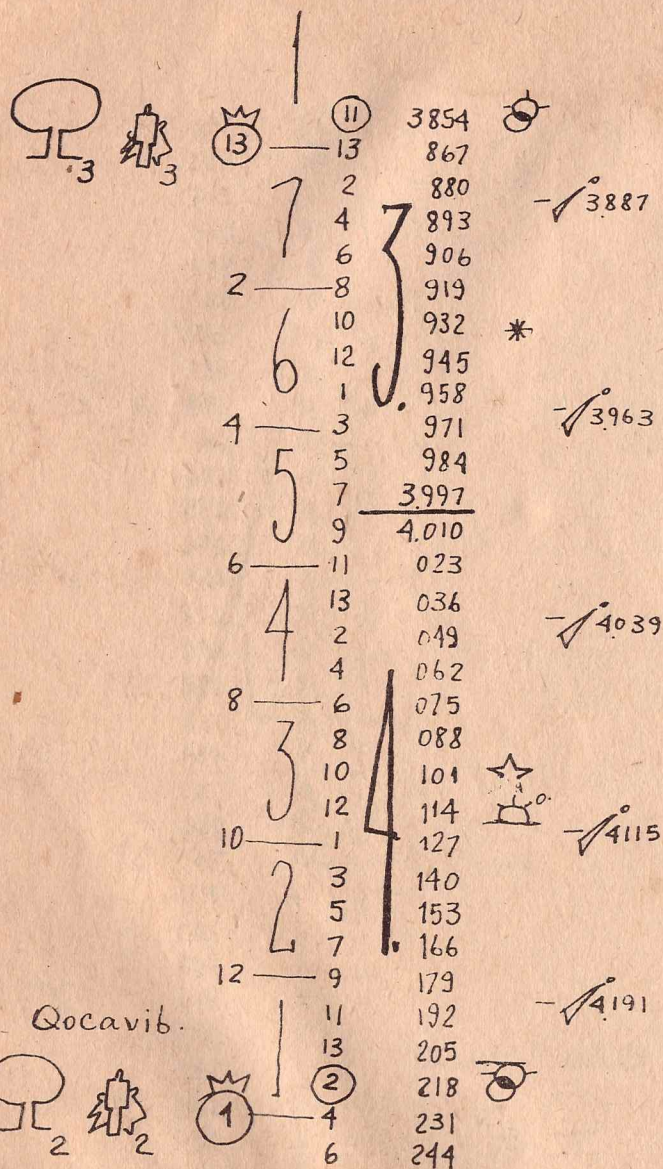 1
11 3854
3 3 13 13 867
2 880 3.887
7 4 893
6 906
2 8 919
3. 10 932
6 12 945
1 958
4 3 971 3.963
5 5 984
7 3.997
9 4.010
6 11 023
13 036
4 2 049 4.039
4 062
8 6 075
3 8 088
10 101
4. 12 114
10 1 127 4115
3 140
2 5 153
7 166
12 9 179
Qocavib. 11 192 4.191
1 13 205
2 218
2 2 1 4 231
6 244